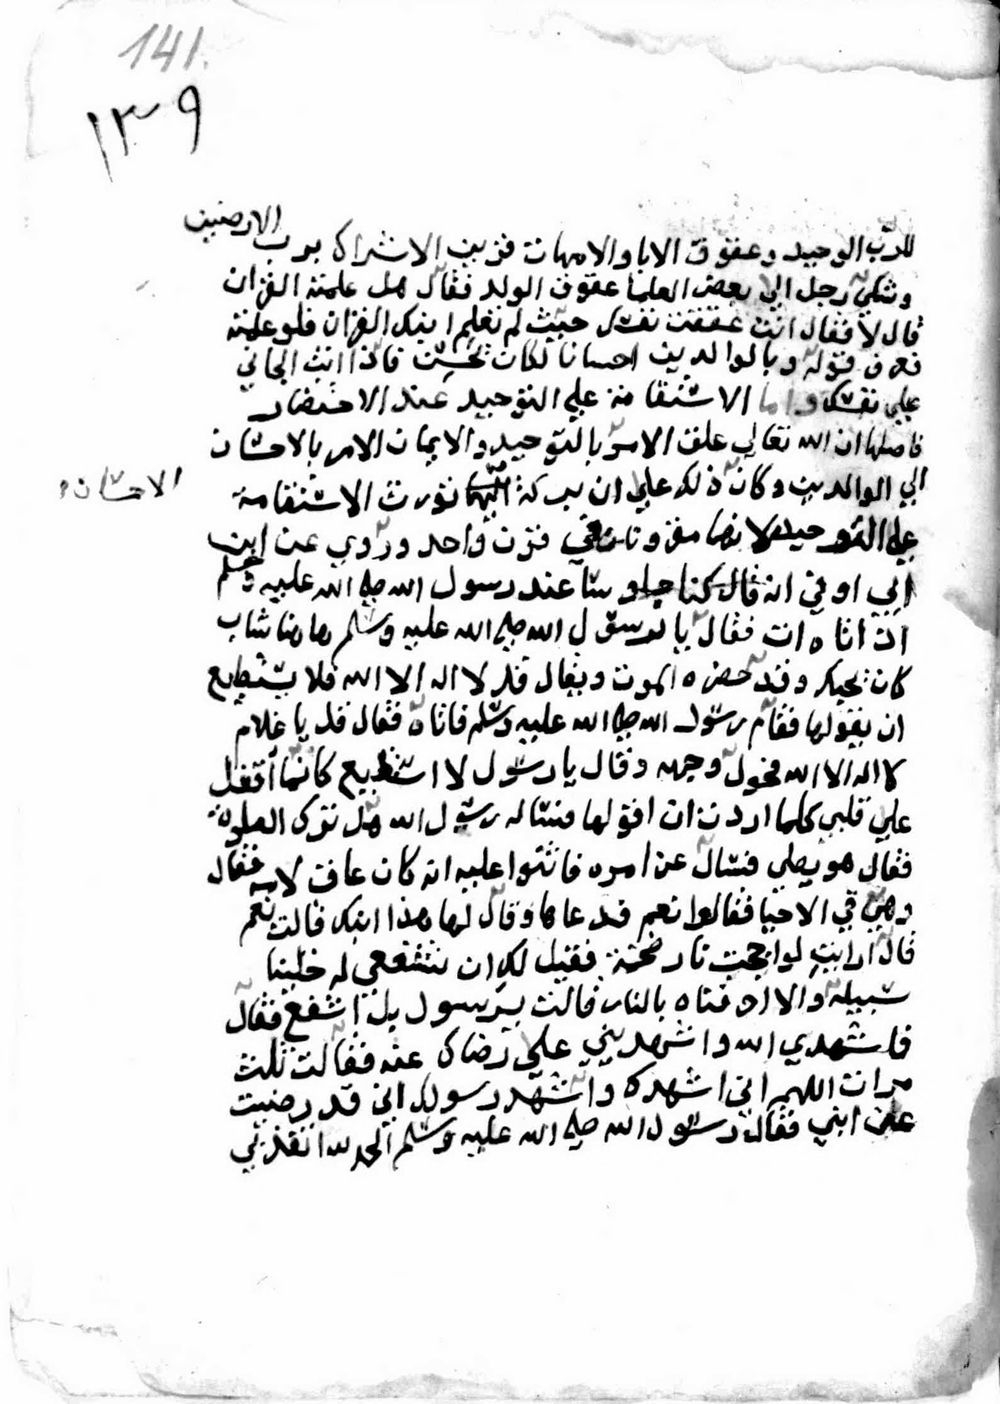 141.
١٣٩
للرب الوحيد وعقوق الابا والامهات قرين الاشراك برب الارضين
وشكي رجل الي بعض العلما عقوق الولد فقال هل علمته القران
قال لا فقال انت عققت نفسك حيث لم تعلم ابنك القران فلو علمته
فعرف قوله وبالوالدين احسانا لكان يحسن فاذا انت الجاني
علي نفسك واما الاستقامة علي التوحيد عند الاحتضار
فاصلها ان الله تعالي علق الامر بالتوحيد والايمان الامر بالاحسان
الي الوالدين وكان ذلك علي ان بركة تورث الاستقامة
الاحسان
علي التوحيد لانها مقرونان في قرن واحد وروي عن ابن
ابي اوفي انه قال كنا جلوسا عند رسول الله صلي الله عليه وسلم
اذ اتاه ات فقال يا رسول الله صلي الله عليه وسلم هاهنا شاب
كان يحبك وقد حضره الموت ويقال قل لا اله الا الله فلا يستطيع
ان يقولها فقام رسول الله صلي الله عليه وسلم فاتاه فقال قل يا غلام
لا اله الا الله فحول وجهه وقال يا رسول لا استطيع كانما اقفل
علي قلبي كلما اردت ان اقولها فساله رسول الله هل تترك الصلوة
فقال هو يصلي فسال عن امره فاثنوا عليه انه كان عاق لامه فقال
وهي في الاحيا فقالوا نعم فدعاها وقال لها هذا ابنك قالت نعم
قال ارايت لو اججت نار ضخمة فقيل لك ان تشفعي له خلينا
سبيله والا احرقناه بالنار قالت يرسول بل اشفع فقال
فاشهدي الله واشهديني علي رضاك عنه فقالت ثلث
مرات اللهم اني اشهدك واشهد رسولك اني قد رضيت
علي ابني فقال رسول الله صلي الله عليه وسلم الحمد لله انقذ بي